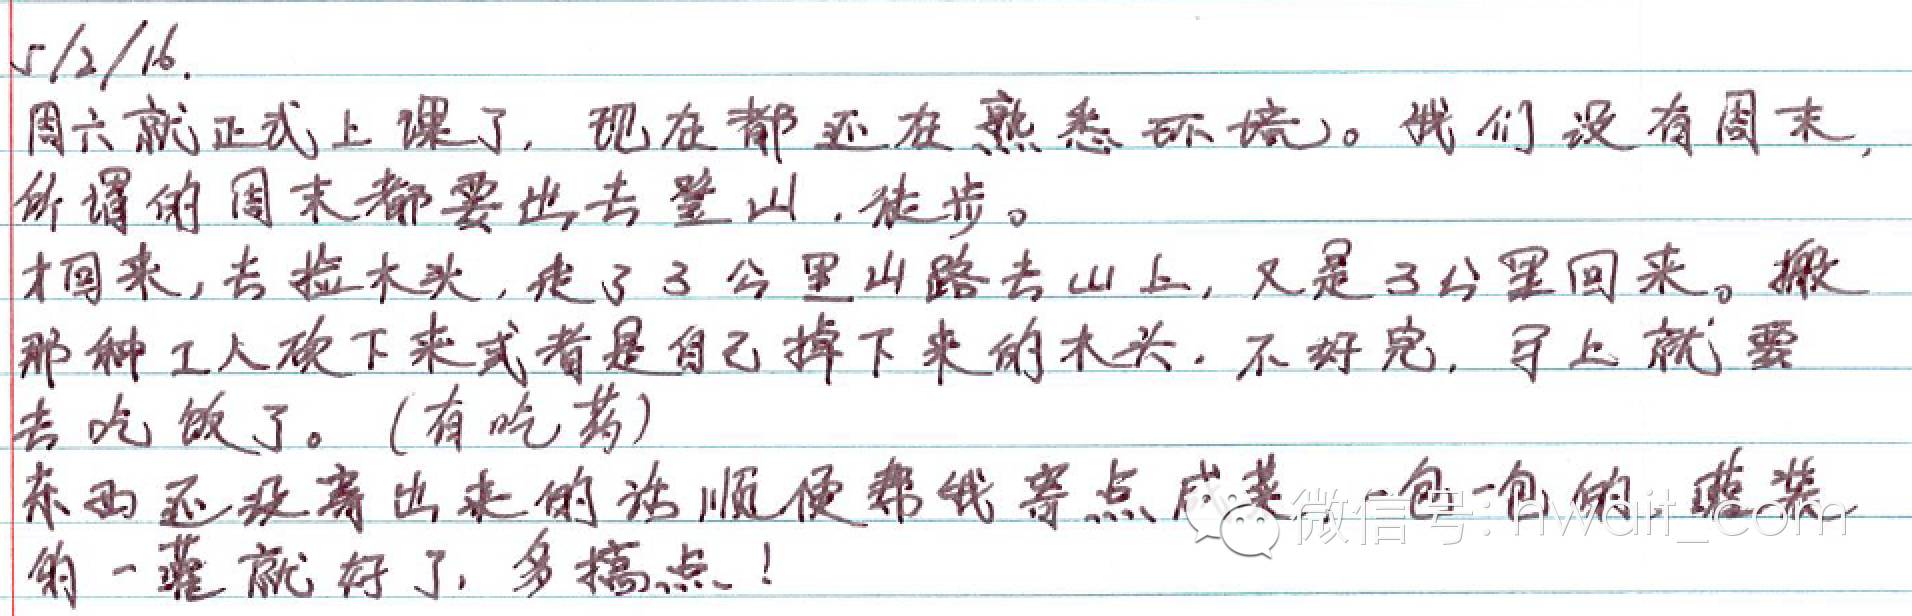 5/2/16.
周六就正式上课了，现在都还在熟悉环境。我们没有周末，
所谓的周末都要出去登山，徒步。
才回来，去捡木头，走了3公里山路去山上，又是3公里回来。搬
那种工人砍下来或者是自己掉下来的木头。不好完，马上就要
去吃饭了。（有吃药）
东西还没寄出来的话顺便帮我寄点咸菜，一包一包的，罐装
的一罐就好了，多搞点！
微信号: nwdit_com